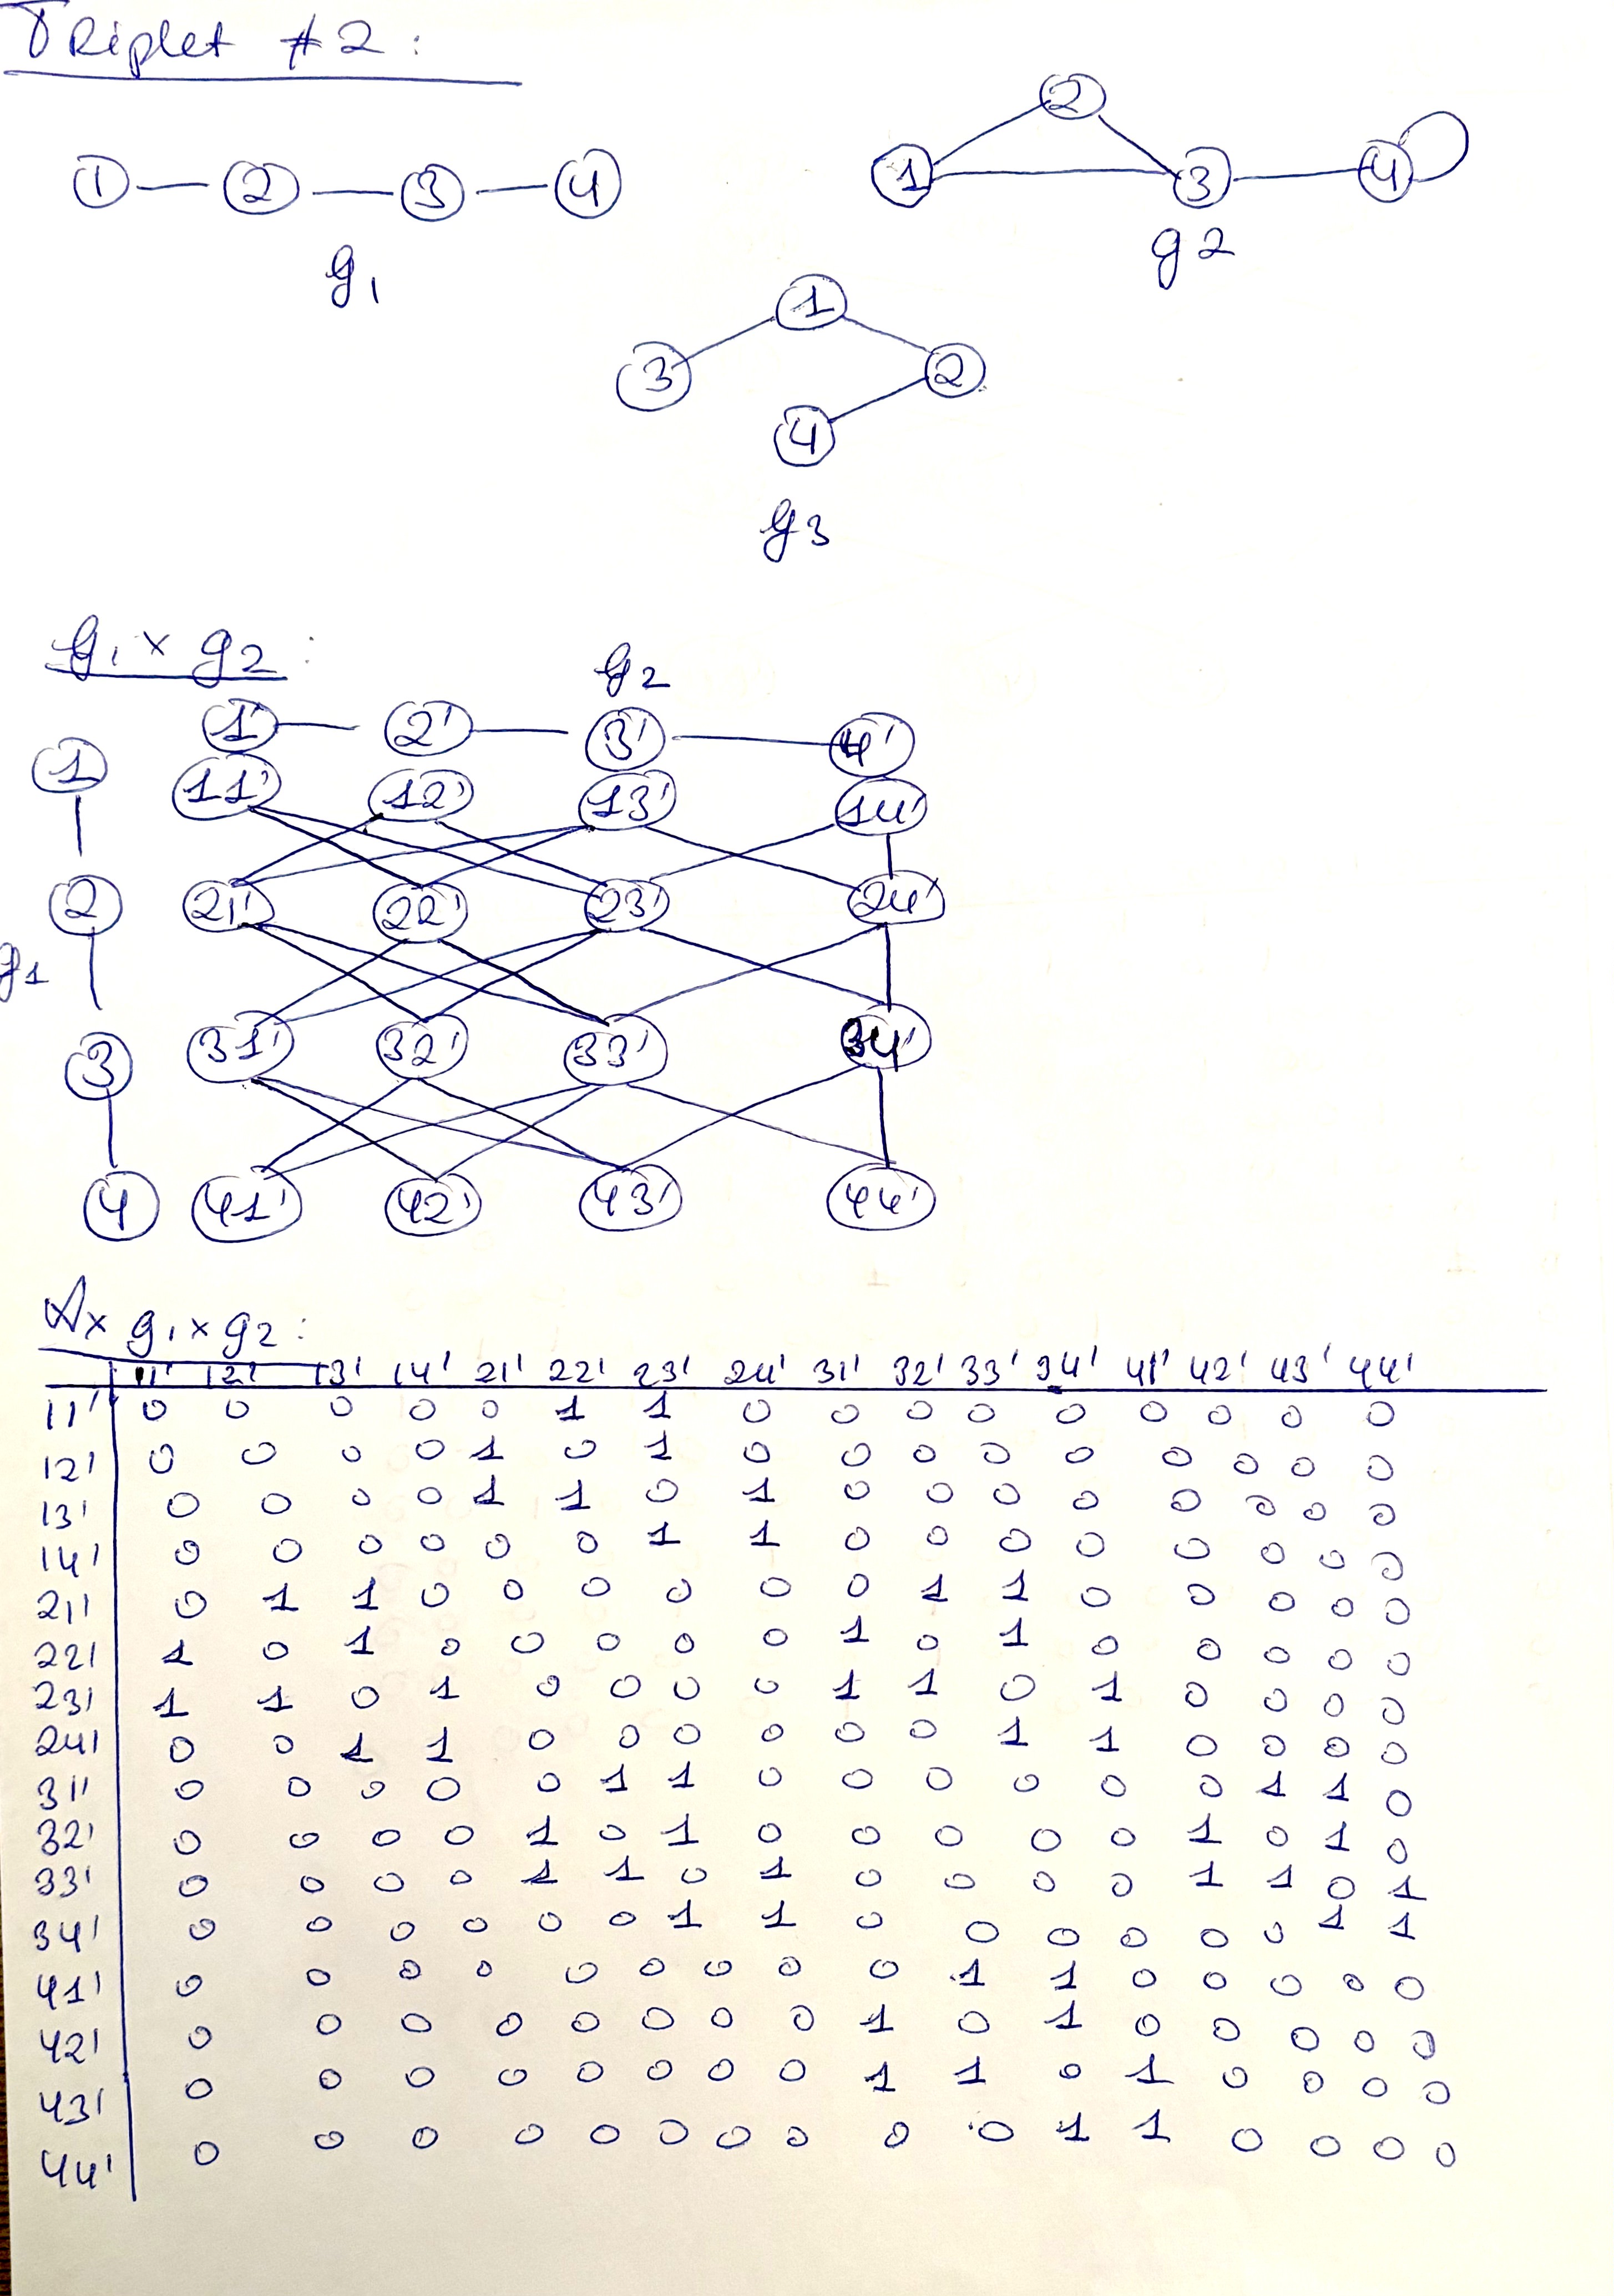 Triplet #2:
1 2 3 4
g1
2
1 3 4
g2
1
3 2
4
g3
g1 x g2:
g2
1' 2' 3' 4'
1 11' 12' 13' 14'
2 21' 22' 23' 24'
g1
3 31' 32' 33' 34'
4 41' 42' 43' 44'
Ax g1 x g2:
11' 12' 13' 14' 21' 22' 23' 24' 31' 32' 33' 34' 41' 42' 43' 44'
11' 0 0 0 0 0 1 1 0 0 0 0 0 0 0 0 0
12' 0 0 0 0 1 0 1 0 0 0 0 0 0 0 0 0
13' 0 0 0 0 1 1 0 1 0 0 0 0 0 0 0 0
14' 0 0 0 0 0 0 1 1 0 0 0 0 0 0 0 0
21' 0 1 1 0 0 0 0 0 0 1 1 0 0 0 0 0
22' 1 0 1 0 0 0 0 0 1 0 1 0 0 0 0 0
23' 1 1 0 1 0 0 0 0 1 1 0 1 0 0 0 0
24' 0 0 1 1 0 0 0 0 0 0 1 1 0 0 0 0
31' 0 0 0 0 0 1 1 0 0 0 0 0 0 1 1 0
32' 0 0 0 0 1 0 1 0 0 0 0 0 1 0 1 0
33' 0 0 0 0 1 1 0 1 0 0 0 0 1 1 0 1
34' 0 0 0 0 0 0 1 1 0 0 0 0 0 0 1 1
41' 0 0 0 0 0 0 0 0 0 1 1 0 0 0 0 0
42' 0 0 0 0 0 0 0 0 1 0 1 0 0 0 0 0
43' 0 0 0 0 0 0 0 0 1 1 0 1 0 0 0 0
44' 0 0 0 0 0 0 0 0 0 0 1 1 0 0 0 0